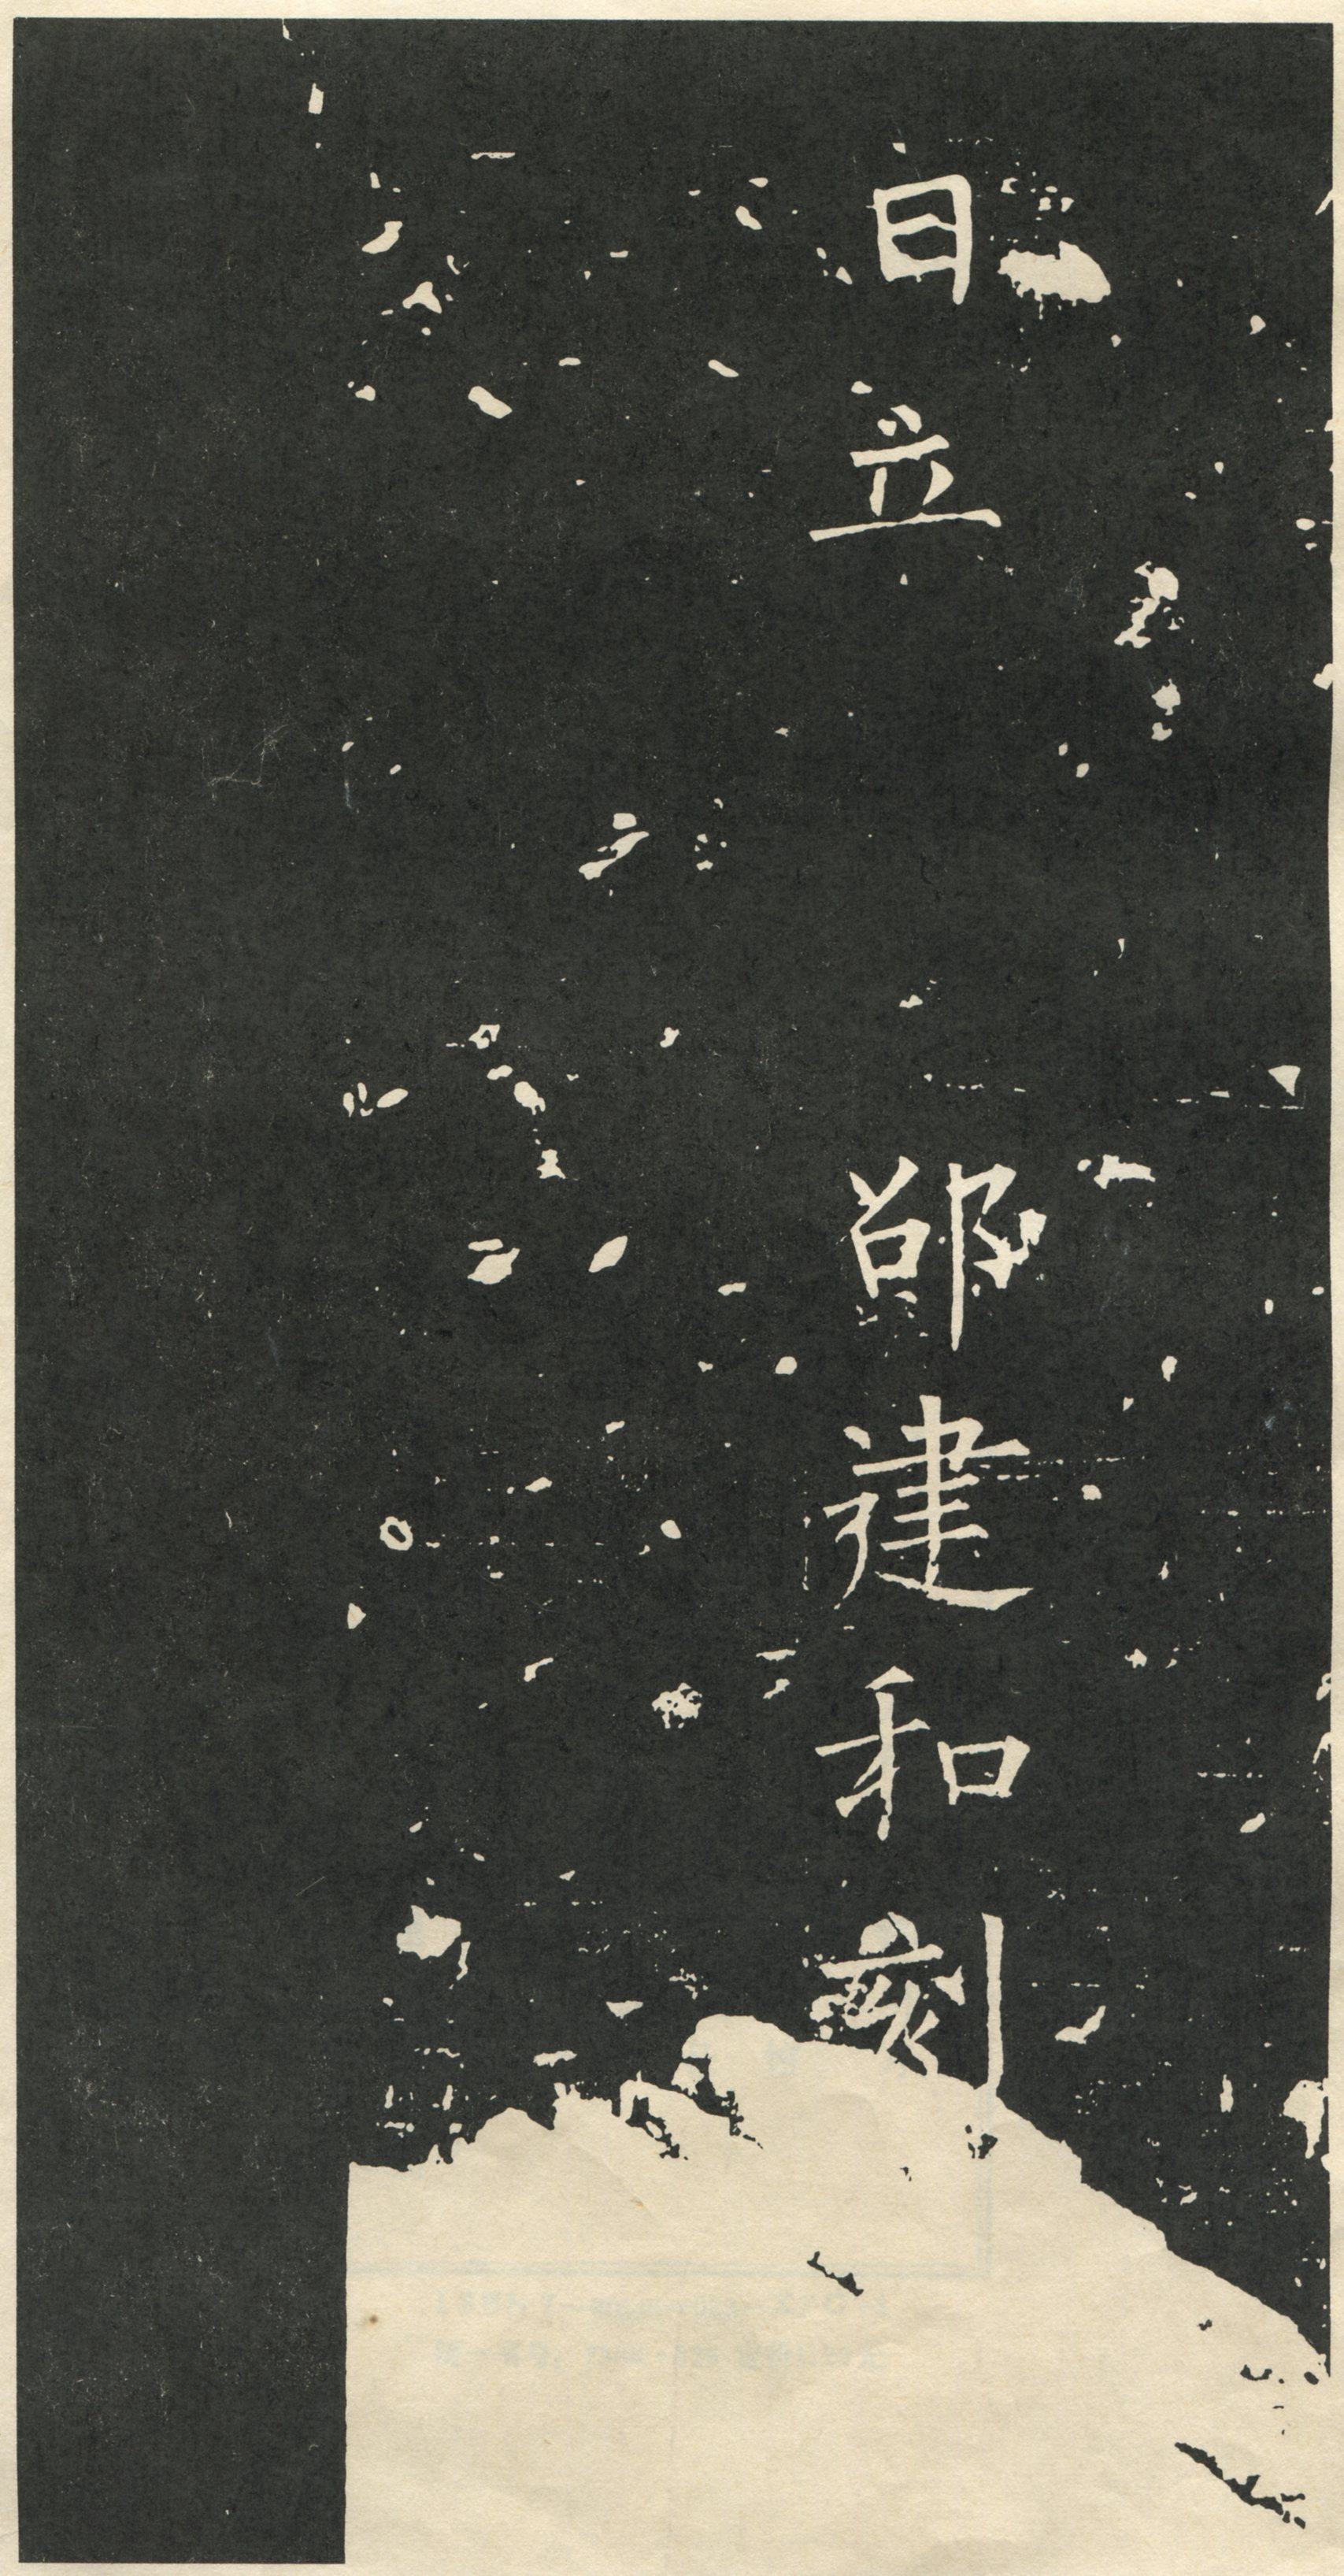 日立　　邰建和刻